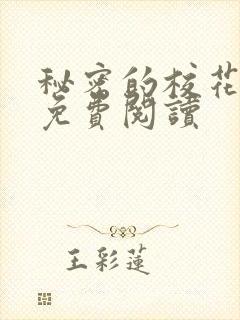 秘密的校花
免費閱讀
王彩蓮